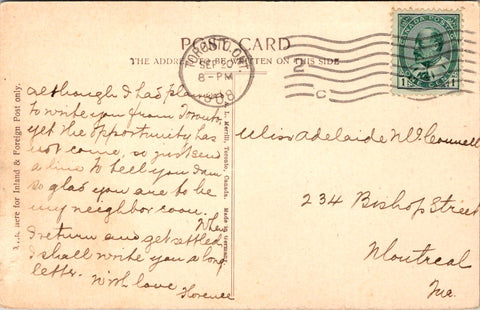 POST CARD
THE ADDRESS TO BE WRITTEN ON THIS SIDE
TORONTO, ONT.
SEP 30
8-PM
1908
2
C
CANADA POSTAGE
1 1
here for Inland & Foreign Post only.
Merrill, Toronto, Canada. Made in Germany.
although I had planned
to write you from Toronto,
yet the opportunity has
not come, so just send
a line to tell you I am
so glad you are to be
my neighbor soon. When
I return and get settled
I shall write you a long
letter.
With love
Florence
Miss Adelaide McConnell
234 Bishop Street
Montreal
Que.